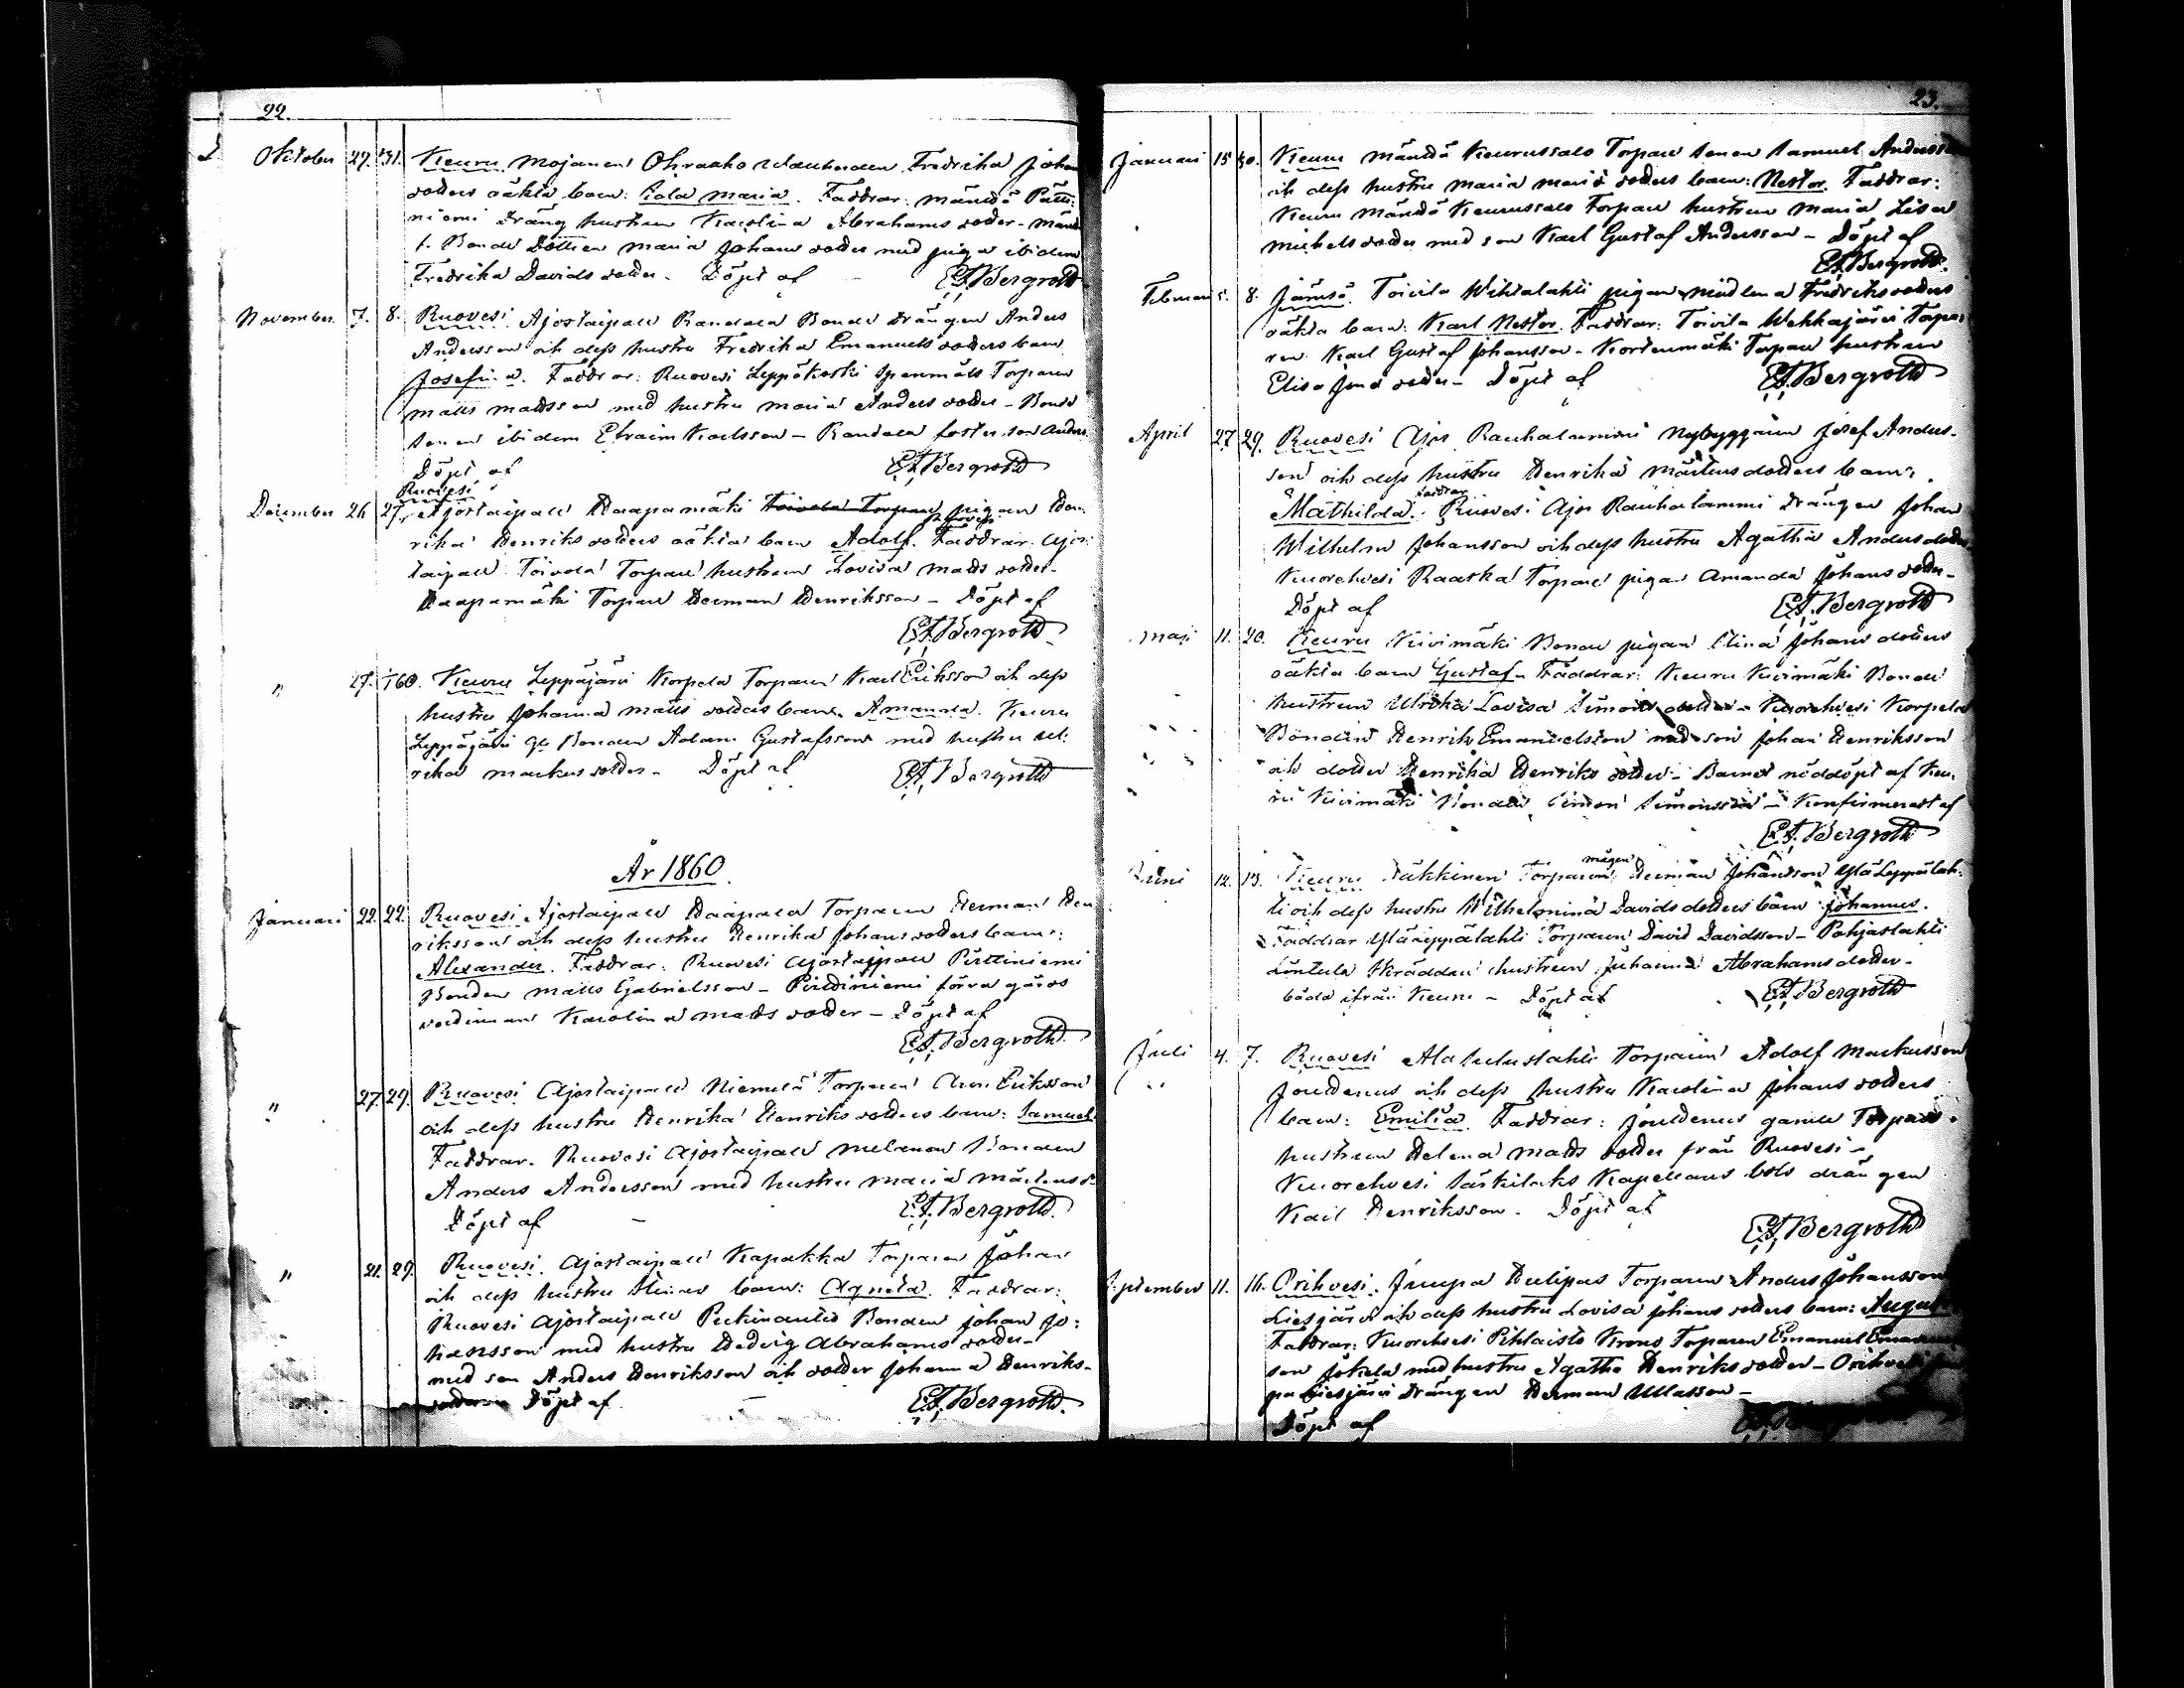 22.
Oktober 29. 31. Keuru Mojanen Ohraaho Fredrika Johans
dotters oäkta barn: Ida Maria. Faddrar: Mändä Pätti-
niemi Dräng hustrun Karolina Abrahams dotter - Mändä
f. Bonde Dottren Maria Johans dotter med piga ibidem
Fredrika Davids dotter. Döpt af E.A. Bergroth
November 7. 8. Ruovesi Ajostaipale Randala Bonde drängen Anders
Andersson och dess hustru Fredrika Emanuels dotters barn
Josefina. Faddrar: Ruovesi Leppäkoski Torparen
Matts Mattsson med hustru Maria Anders dotter - Bonde
sonen ibidem Efraim Karlsson - Randala foster son Anders
Döpt af E.A. Bergroth
Ruovesi
December 26. 27. Ajostaipale Haapamäki Toivola Torpare pigan Hen-
rika Henriks dotters oäkta barn Adolf. Faddrar: Ajos-
taipale Toivola Torpare hustrun Lovisa Mats dotter -
Haapamäki Torpare Herman Henriksson - Döpt af
E.A. Bergroth
" 27. 1/60. Keuru Leppäjärvi Korpela Torparen Karl Eriksson och dess
hustru Johanna Matts dotters barn Amanda. Keuru
Leppäjärvi Bonden Adam Gustafsson med hustru Ul-
rika Markus dotter - Döpt af E.A. Bergroth
År 1860.
Januari 22. 22. Ruovesi Ajostaipale Haapala Torparen Herman Hen
riksson och dess hustru Henrika Johans dotters barn:
Alexander. Faddrar: Ruovesi Ajostaipale Pirttiniemi
Bonden Matts Gabrielsson - Pirttiniemi förra gårds
värdinnan Karolina Mats dotter - Döpt af
E.A. Bergroth
" 27. 29. Ruovesi Ajostaipale Niemelä Torparen Eriksson
och dess hustru Henrika Henriks dotters barn: Samuel.
Faddrar. Ruovesi Ajostaipale Bonden
Anders Andersson med hustru Maria Mårtens d.
Döpt af E.A. Bergroth
" 21. 29. Ruovesi. Ajostaipale Kapakka Torparen Johan
och dess hustru barn: Agneta. Faddrar:
Ruovesi Ajostaipale Bonden Johan Jo-
hansson med hustru Hedvig Abrahams dotter -
med son Anders Henriksson och dotter Johanna Henriks-
Döpt af E.A. Bergroth
23.
Januari 15 30. Keuru Mändä Keurussalo Torpare sonen Samuel Andersson
och dess hustru Maria dotters barn: Nestor. Faddrar:
Keuru Mändä Keurussalo Torpare hustrun Maria Lisa
Michels dotter med son Karl Gustaf Andersson - Döpt af
E.A. Bergroth.
Februari 5. 8. Jämsä. Toivila Wihtalahti pigan Fredriks dotters
oäkta barn: Karl Nestor. Faddrar: Toivila Wehkajärvi Torpa-
ren Karl Gustaf Johansson - Kortenmäki Torpare hustrun
Elisa dotter - Döpt af E.A. Bergroth
April 27 29. Ruovesi Ajos Rauhalammi Nybyggaren Josef Anders-
son och dess hustru Henrika Mårtens dotters barn:
Mathilda. Faddrar Ruovesi Ajos Rauhalammi Drängen Johan
Wilhelm Johansson och dess hustru Agatha Anders dotter
Kuorehvesi Raaska Torpare pigan Amanda Johans dotter -
Döpt af E.A. Bergroth
Maji 11. 20. Keuru Kivimäki Bonde pigan Elina Johans dotters
oäkta barn Gustaf - Faddrar: Keuru Kivimäki Bonde
hustrun Ulrika Lovisa Simons dotter - Kuorehvesi Korpela
Bonden Henrik Emanuelsson med son Johan Henriksson
och dotter Henrika Henriks dotter - Barnet nöddöpt af Keu-
ru Kivimäki Bonden Simon Simonsson - Konfirmerat af
E.A. Bergroth
Juni 12. 13. Keuru Torparen mågen Herman Johansson Ylä Leppälah-
ti och dess hustru Wilhelmina Davids dotters barn Johannes.
Faddrar Yläleppälahti Torparen David Davidsson - Pohjaslahti
Skräddare hustrun Johanna Abrahams dotter -
båda ifrån Keuru - Döpt af E.A. Bergroth
Juli 4. 7. Ruovesi Torparen Adolf Markusson
Joudenus och dess hustru Karolina Johans dotters
barn: Emilia. Faddrar: Joudenus gamle Torpare
hustrun Helena Mats dotter från Ruovesi -
Kuorehvesi Särkilaks Kapellans bols drängen
Karl Henriksson - Döpt af
E.A. Bergroth
September 11. 16. Orihvesi. Juupa Torparen Anders Johansson
Liesjärvi och dess hustru Lovisa Johans dotters barn: August
Faddrar: Kuorehvesi Pihlaisto Krono Torparen Emanuel Emanuels
son Jokela med hustru Agatha Henriks dotter - Orihvesi Juu
pa Liesjärvi Drängen Herman Ullasson -
Döpt af